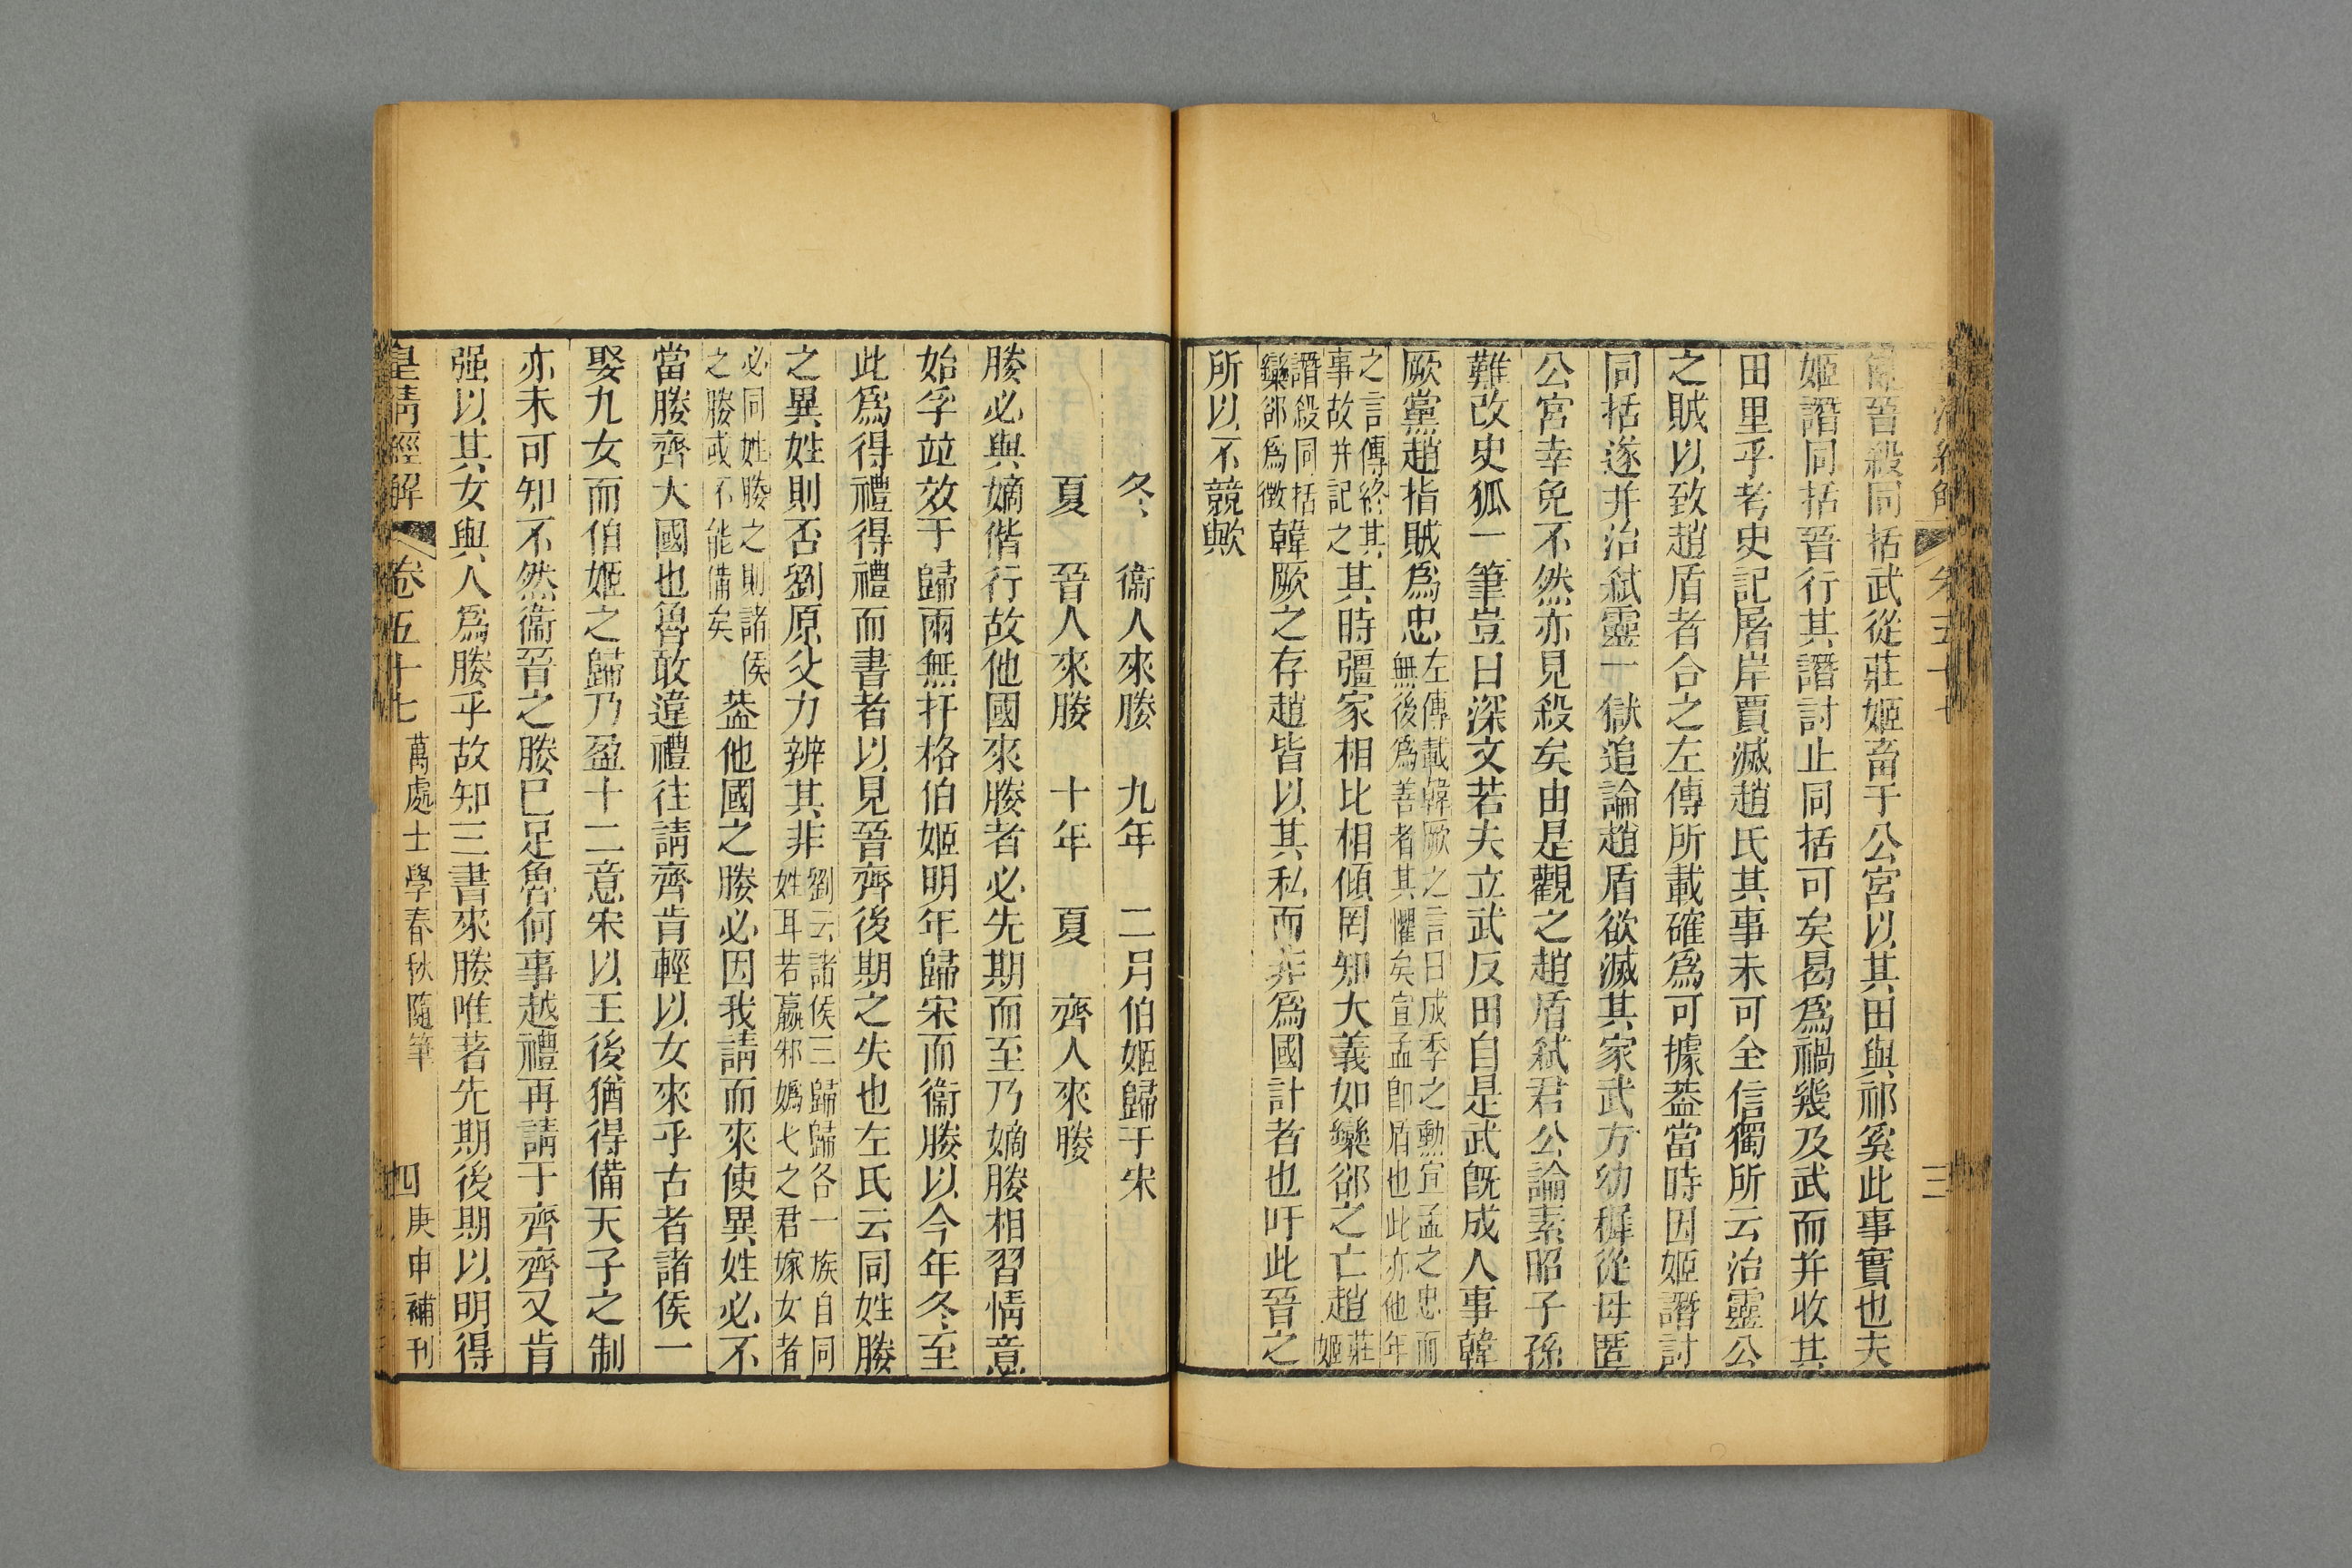 皇清經解 卷五十七 三
晉殺同括武從莊姬畜于公宮以其田與祁奚此事實也夫
姬譖同括晉行其譖討止同括可矣曷為禍幾及武而并收其
田里乎考史記屠岸賈滅趙氏其事未可全信獨所云治靈公
之賊以致趙盾者合之左傳所載確為可據葢當時因姬譖討
同括遂并治弒靈一獄追論趙盾欲滅其家武方幼穉從母匿
公宮幸免不然亦見殺矣由是觀之趙盾弒君公論素昭子孫
難改史狐一筆豈曰深文若夫立武反田自是武旣成人事韓
厥黨趙指賊為忠左傳載韓厥之言曰成季之勳宣孟之忠而
無後為善者其懼矣宣孟卽盾也此亦他年
之言傳終其
事故并記之其時彊家相比相傾罔知大義如欒郤之亡趙莊
姬
譖殺同括
欒郤為徵韓厥之存趙皆以其私而非為國計者也吁此晉之
所以不競歟
冬 衞人來媵 九年 二月伯姬歸于宋
夏 晉人來媵 十年 夏 齊人來媵
媵必與嫡偕行故他國來媵者必先期而至乃嫡媵相習情意
始孚竝效于歸兩無扞格伯姬明年歸宋而衞媵以今年冬至
此為得禮得禮而書者以見晉齊後期之失也左氏云同姓媵
之異姓則否劉原父力辨其非劉云諸侯三歸歸各一族自同
姓耳若嬴邾媯弋之君嫁女者
必同姓媵之則諸侯
之媵或不能備矣葢他國之媵必因我請而來使異姓必不
當媵齊大國也魯敢違禮往請齊肯輕以女來乎古者諸侯一
娶九女而伯姬之歸乃盈十二意宋以王後猶得備天子之制
亦未可知不然衞晉之媵已足魯何事越禮再請于齊齊又肯
强以其女與人為媵乎故知三書來媵唯著先期後期以明得
皇清經解 卷五十七 萬處士學春秋隨筆 四 庚申補刊